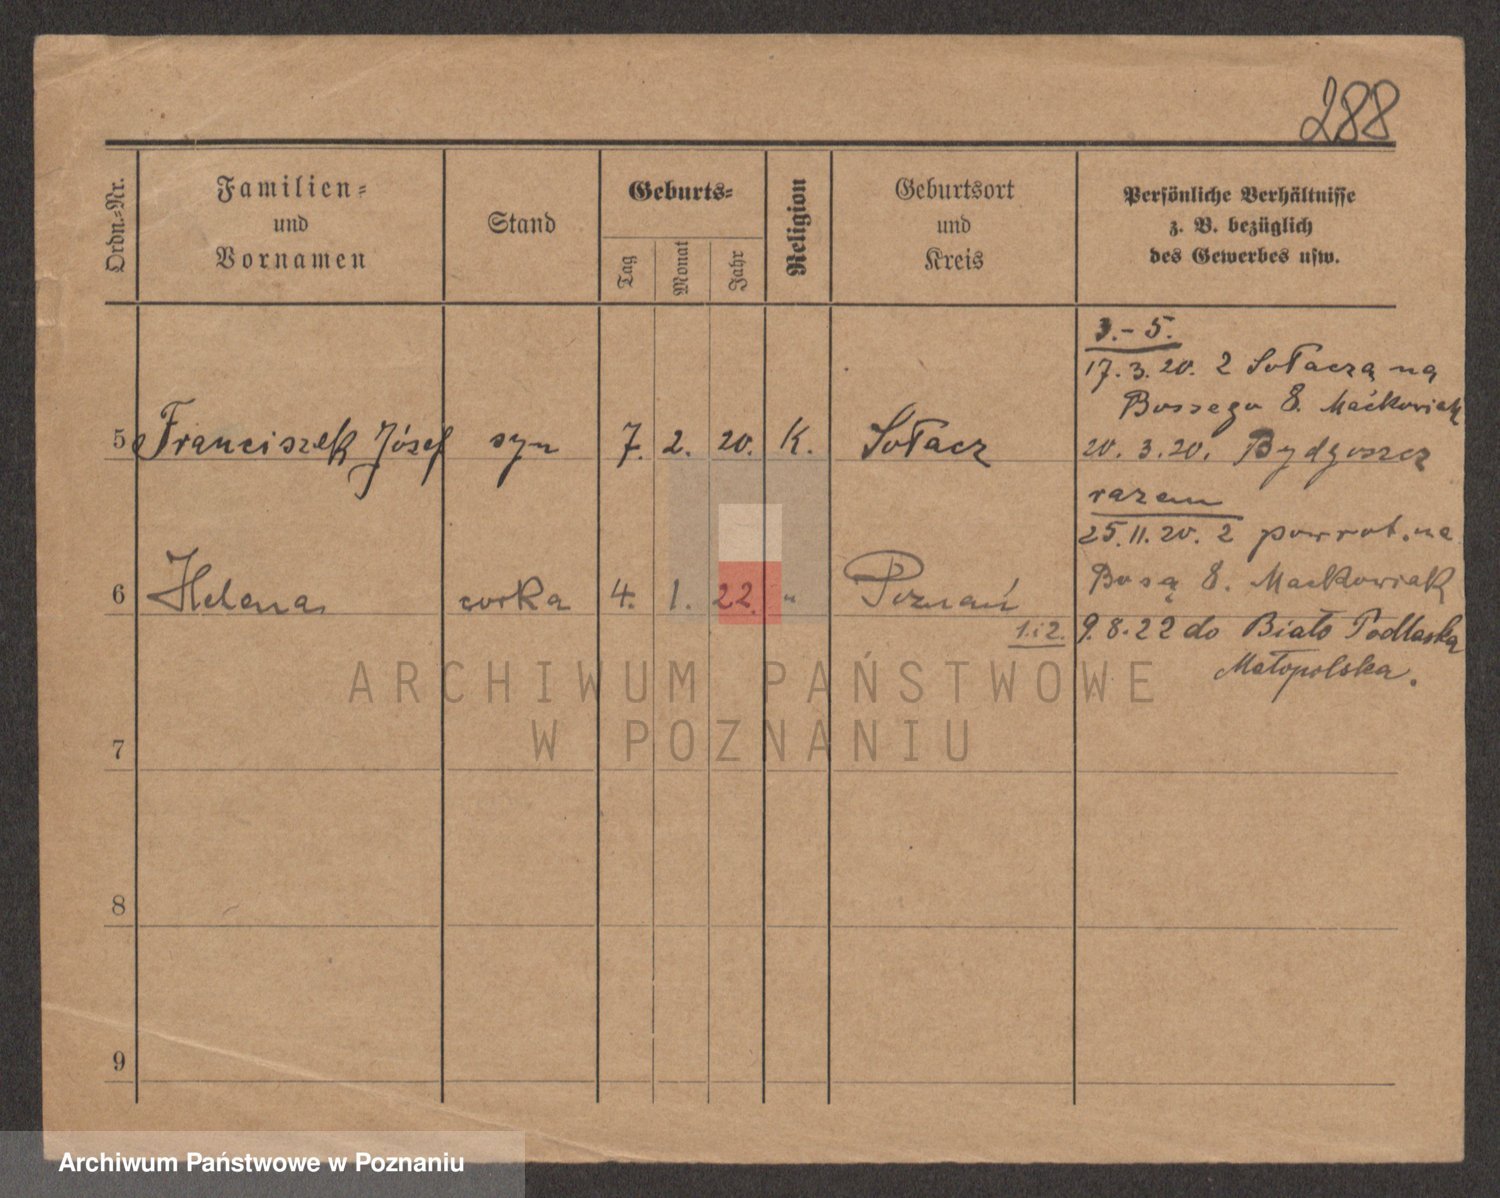 288
Ordn.-Nr.
Familien-
und
Vornamen
Stand
Geburts-
Tag
Monat
Jahr
Religion
Geburtsort
und
Kreis
Persönliche Verhältnisse
z. B. bezüglich
des Gewerbes usw.
3.- 5.
17. 3. 20. 2 Sołacza na
Bossego 8. Maćkowiak
5 Franciszek Józef syn 7. 2. 20. K. Sołacz
20. 3. 20. Bydgoszcz
razem
25. 11. 20. 2 powrot. na
Bosą 8. Mackowiak
6 Helena corka 4. 1. 22. " Poznań
1. i 2. 9. 8. 22 do Biało Podlaska
Małopolska.
ARCHIWUM PAŃSTWOWE
W POZNANIU
7
8
9
Archiwum Państwowe w Poznaniu